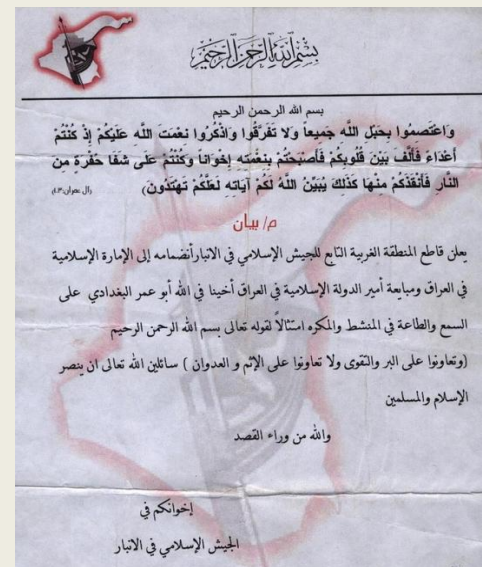 بسم الله الرحمن الرحيم
بسم الله الرحمن الرحيم
وَاعْتَصِمُوا بِحَبْلِ اللَّهِ جَمِيعاً وَلَا تَفَرَّقُوا وَاذْكُرُوا نِعْمَتَ اللَّهِ عَلَيْكُمْ إِذْ كُنْتُمْ
أَعْدَاءً فَأَلَّفَ بَيْنَ قُلُوبِكُمْ فَأَصْبَحْتُمْ بِنِعْمَتِهِ إِخْوَانًا وَكُنْتُمْ عَلَى شَفَا حُفْرَةٍ مِنَ
النَّارِ فَأَنْقَذَكُمْ مِنْهَا كَذَلِكَ يُبَيِّنُ اللَّهُ لَكُمْ آيَاتِهِ لَعَلَّكُمْ تَهْتَدُونَ) (آل عمران:
م/ بيان
يعلن قاطع المنطقة الغربية التابع للجيش الإسلامي في الانبارأنضمامه إلى الإمارة الإسلامية
في العراق ومبايعة أمير الدولة الإسلامية في العراق أخينا في الله أبو عمر البغدادي على
السمع والطاعة في المنشط والمكره امتثالاً لقوله تعالى بسم الله الرحمن الرحيم
(وتعاونوا على البر والتقوى ولا تعاونوا على الإثم و العدوان ) سائلين الله تعالى ان ينصر
الإسلام والمسلمين
والله من وراء القصد
إخوانكم في
الجيش الإسلامي في الانبار